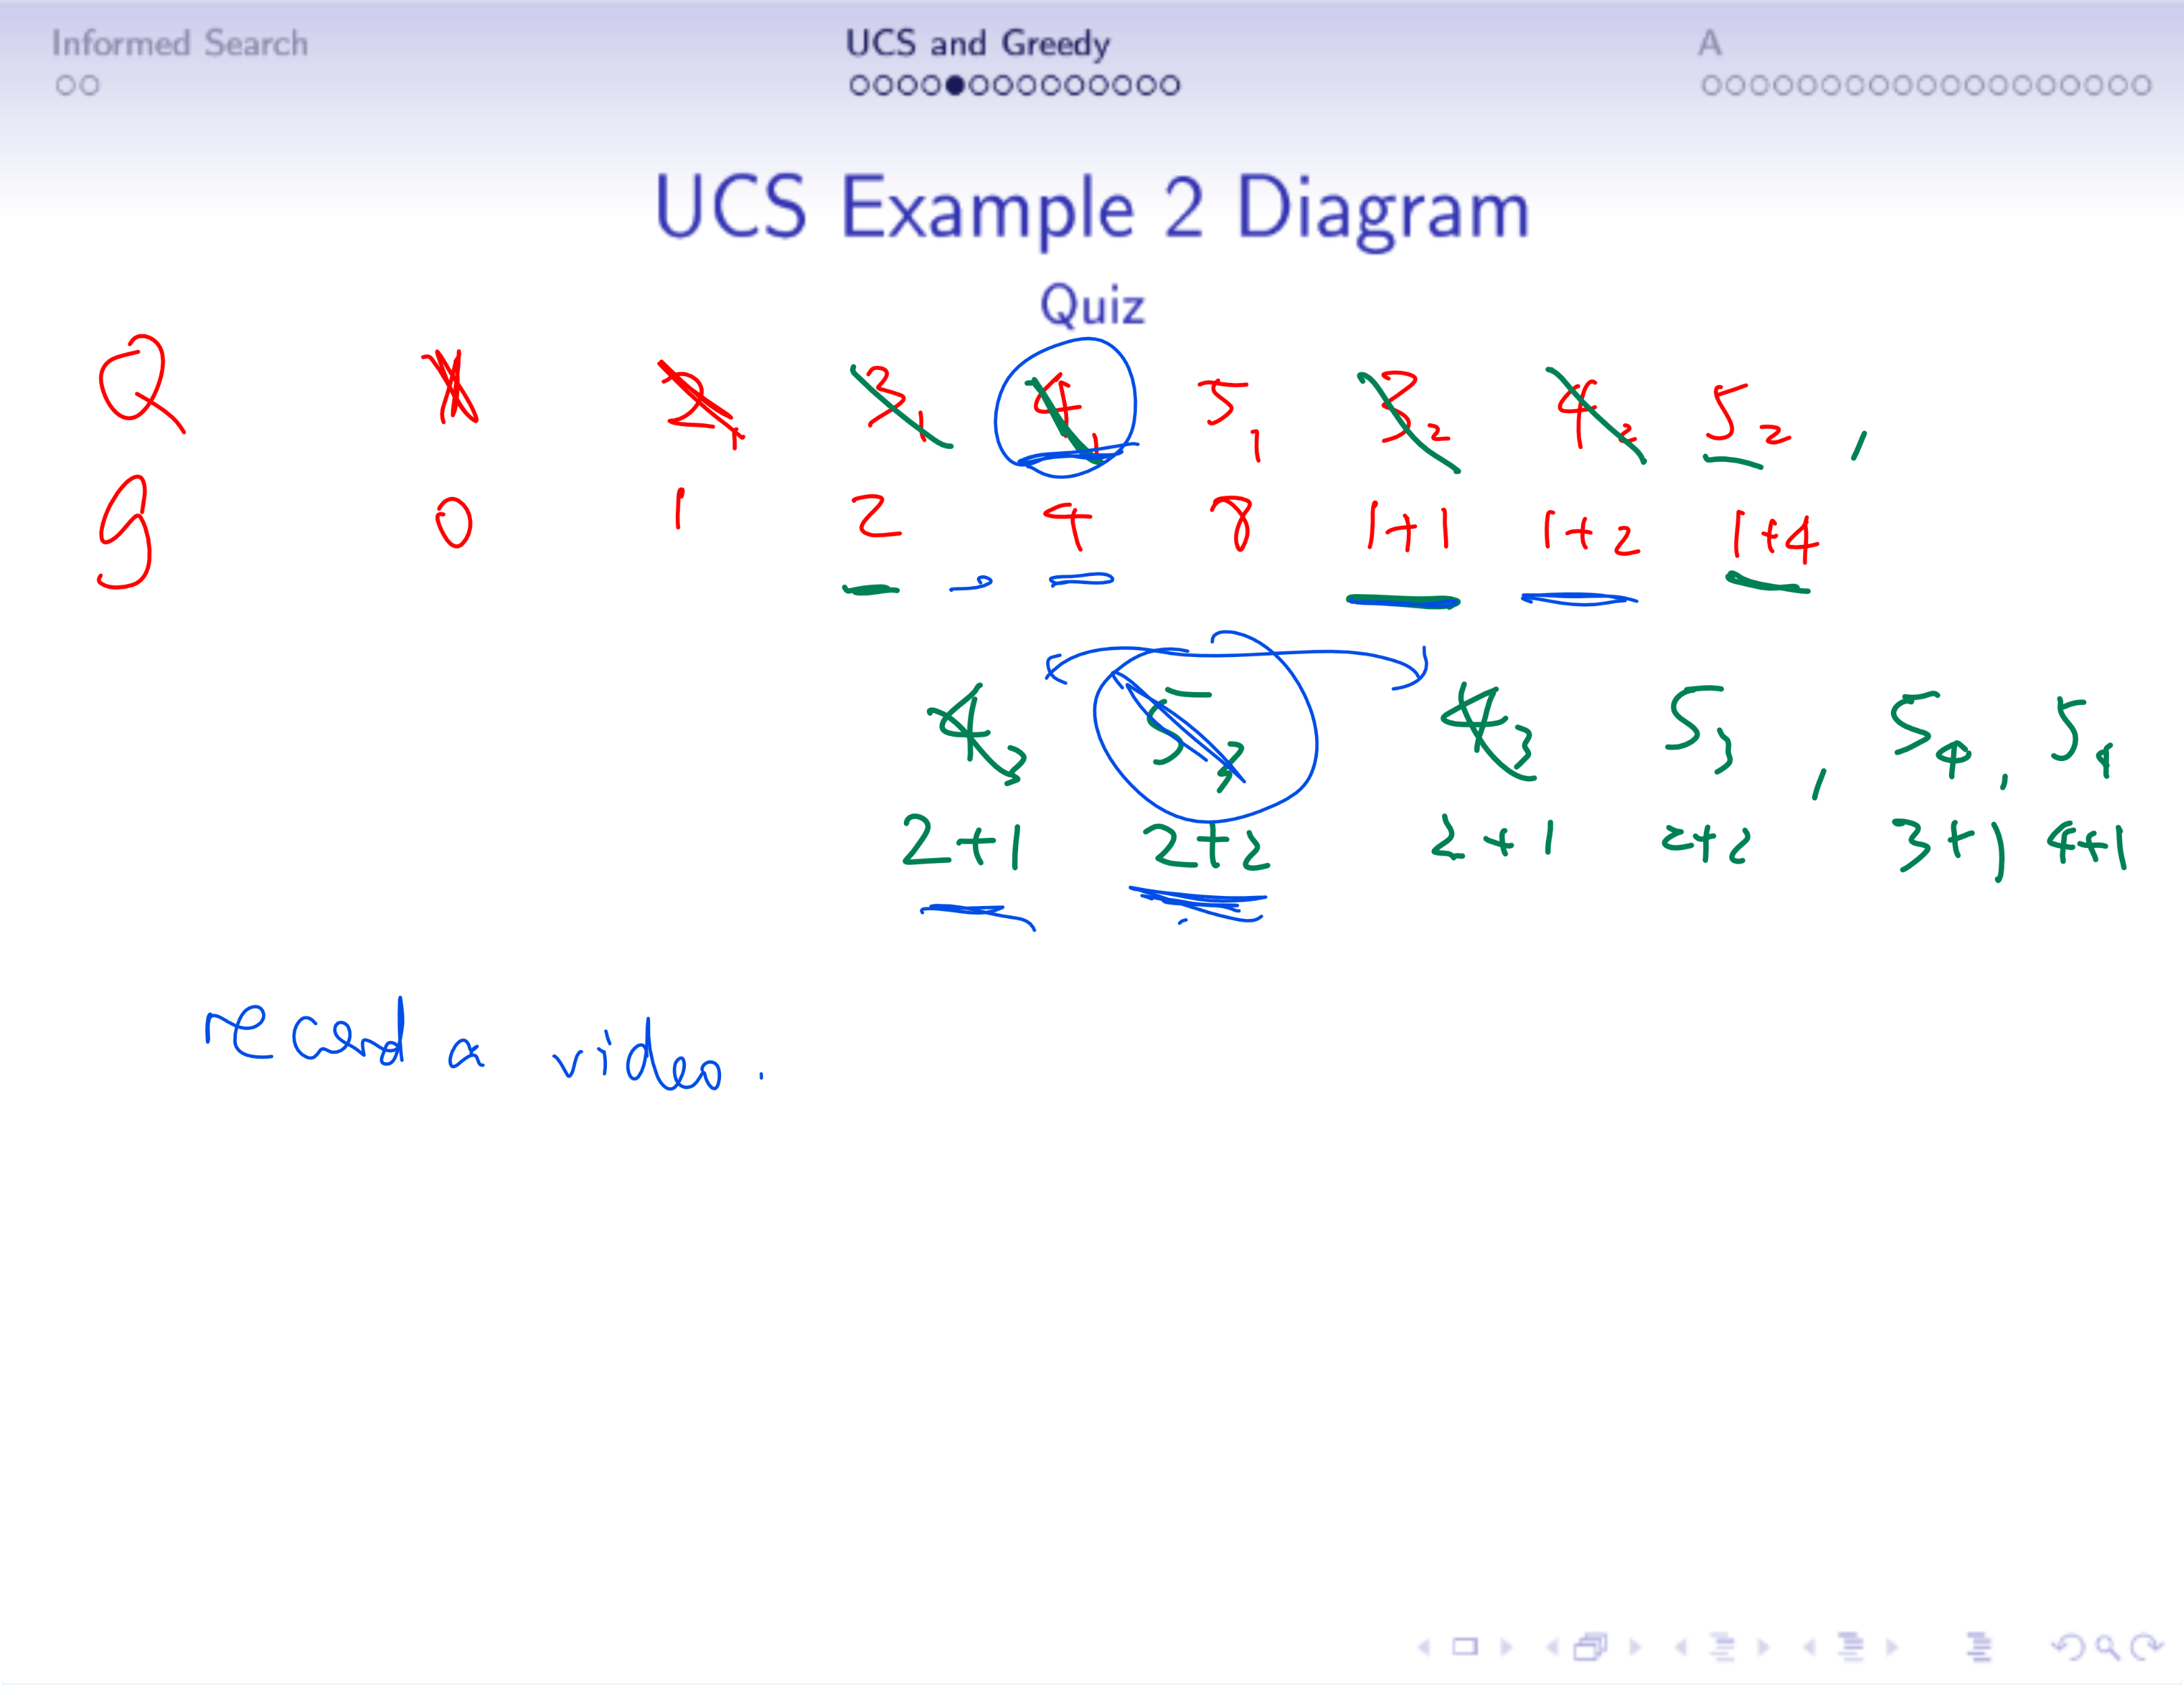 Informed Search UCS and Greedy A
UCS Example 2 Diagram
Quiz
Q 1 2₁ 3₁ 4₁ 5₁ 3₂ 4₂ 5₂ ,
g 0 1 2 4 8 1+1 1+2 1+4
4₃ 5₃ 4₃ 5₃ , 5₄ , 5₄
2+1 2+2 2+1 2+2 3+1 4+1
record a video.